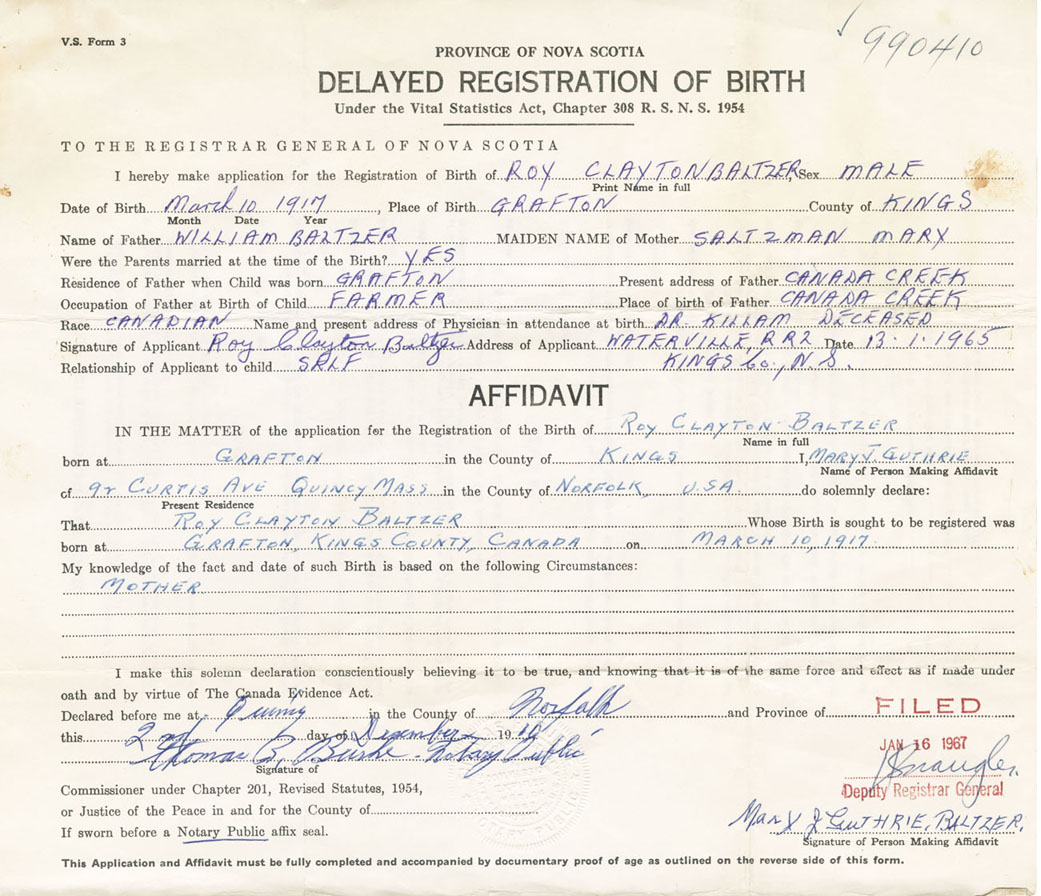 V.S. Form 3
990410
PROVINCE OF NOVA SCOTIA
DELAYED REGISTRATION OF BIRTH
Under the Vital Statistics Act, Chapter 308 R. S. N. S. 1954
TO THE REGISTRAR GENERAL OF NOVA SCOTIA
I hereby make application for the Registration of Birth of ROY CLAYTON BALTZER, Sex MALE
Print Name in full
Date of Birth March 10 1917, Place of Birth GRAFTON County of KINGS
Month Date Year
Name of Father WILLIAM BALTZER MAIDEN NAME of Mother SALTZMAN MARY
Were the Parents married at the time of the Birth? YES
Residence of Father when Child was born GRAFTON Present address of Father CANADA CREEK
Occupation of Father at Birth of Child FARMER Place of birth of Father CANADA CREEK
Race CANADIAN Name and present address of Physician in attendance at birth DR. KILLAM DECEASED
Signature of Applicant Roy Clayton Baltzer Address of Applicant WATERVILLE, RR2 Date 13.1.1965
Relationship of Applicant to child SELF KINGS Co., N.S.
AFFIDAVIT
IN THE MATTER of the application for the Registration of the Birth of ROY CLAYTON BALTZER
Name in full
born at GRAFTON in the County of KINGS I, MARY J. GUTHRIE
Name of Person Making Affidavit
of 92 CURTIS AVE QUINCY MASS in the County of NORFOLK, U.S.A. do solemnly declare:
Present Residence
That ROY CLAYTON BALTZER Whose Birth is sought to be registered was
born at GRAFTON, KINGS COUNTY, CANADA on MARCH 10, 1917.
My knowledge of the fact and date of such Birth is based on the following Circumstances:
MOTHER
I make this solemn declaration conscientiously believing it to be true, and knowing that it is of the same force and effect as if made under
oath and by virtue of The Canada Evidence Act.
Declared before me at Quincy in the County of Norfolk and Province of FILED
this 2nd day of December 19
JAN 16 1967
Thomas B. Burke - Notary Public
Signature of
Deputy Registrar General
Commissioner under Chapter 201, Revised Statutes, 1954,
or Justice of the Peace in and for the County of
Mary J GUTHRIE, BALTZER.
If sworn before a Notary Public affix seal.
Signature of Person Making Affidavit
This Application and Affidavit must be fully completed and accompanied by documentary proof of age as outlined on the reverse side of this form.